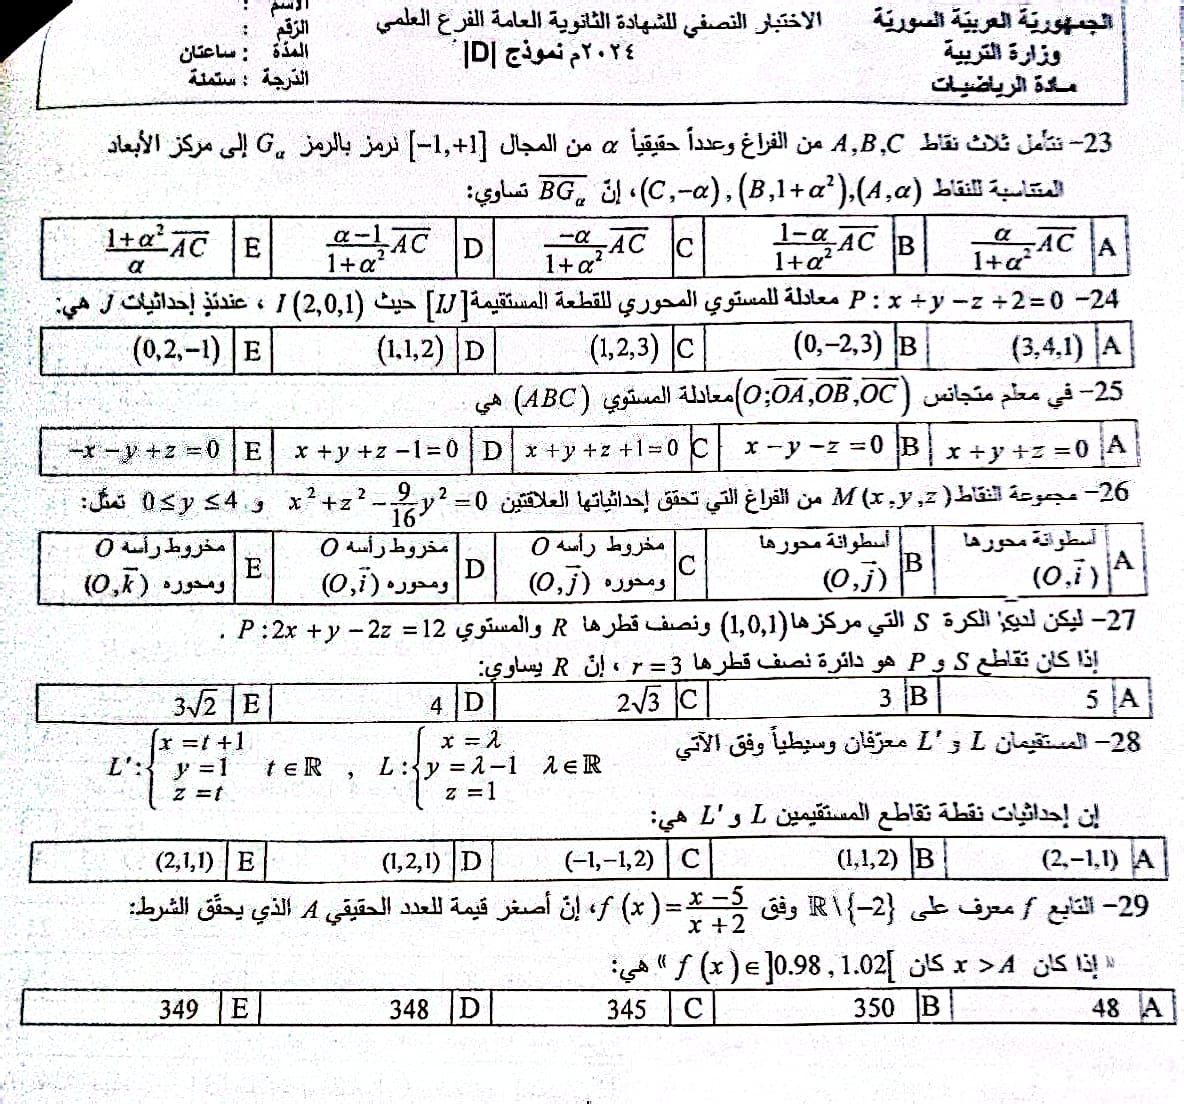 الجمهورية العربية السورية
وزارة التربية
مادة الرياضيات
الاختبار النصفي للشهادة الثانوية العامة الفرع العلمي
٢٠٢٤م نموذج |D|
الاسم :
الرقم :
المدة : ساعتان
الدرجة : ستمئة
23- نتأمل ثلاث نقاط A,B,C من الفراغ وعدداً حقيقياً α من المجال [-1,+1] نرمز بالرمز Gα إلى مركز الأبعاد
المتناسبة للنقاط (A,α),(B,1+α²),(C,-α)، إنّ BGα تساوي:
A α/(1+α²) AC B (1-α)/(1+α²) AC C -α/(1+α²) AC D (α-1)/(1+α²) AC E (1+α²)/α AC
24- P : x + y - z + 2 = 0 معادلة للمستوي المحوري للقطعة المستقيمة [IJ] حيث I(2,0,1) ، عندئذٍ إحداثيات J هي:
A (3,4,1) B (0,-2,3) C (1,2,3) D (1,1,2) E (0,2,-1)
25- في معلم متجانس (O;OA,OB,OC) معادلة المستوي (ABC) هي
A x + y + z = 0 B x - y - z = 0 C x + y + z + 1 = 0 D x + y + z - 1 = 0 E -x - y + z = 0
26- مجموعة النقاط M(x,y,z) من الفراغ التي تحقق إحداثياتها العلاقتين x² + z² - 9/16 y² = 0 و 0 ≤ y ≤ 4 تمثّل:
A أسطوانة محورها (O,i) B أسطوانة محورها (O,j) C مخروط رأسه O ومحوره (O,j) D مخروط رأسه O ومحوره (O,i) E مخروط رأسه O ومحوره (O,k)
27- ليكن لدينا الكرة S التي مركزها (1,0,1) ونصف قطرها R والمستوي P : 2x + y - 2z = 12 .
إذا كان تقاطع S و P هو دائرة نصف قطرها r = 3 ، إنّ R يساوي:
A 5 B 3 C 2√3 D 4 E 3√2
28- المستقيمان L و L' معرّفان وسيطياً وفق الآتي
L : { x = λ , y = λ - 1 , z = 1 λ ∈ ℝ , L' : { x = t + 1 , y = 1 , z = t t ∈ ℝ
إن إحداثيات نقطة تقاطع المستقيمين L و L' هي:
A (2,-1,1) B (1,1,2) C (-1,-1,2) D (1,2,1) E (2,1,1)
29- التابع f معرف على ℝ\{-2} وفق f(x) = (x-5)/(x+2)، إنّ أصغر قيمة للعدد الحقيقي A الذي يحقّق الشرط:
« إذا كان x > A كان f(x) ∈ ]0.98 , 1.02[ » هي:
A 48 B 350 C 345 D 348 E 349